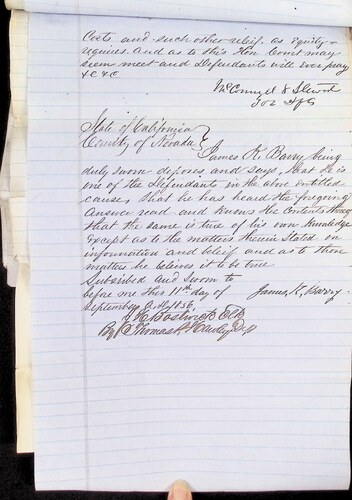 Costs and such other relief as Equity
requires. And as to this Hon Court may
seem meet and Defendants will ever pray
&C &C
McConnell & Stewart
for Dfts
State of California }
County of Nevada }
James K. Barry being
duly sworn deposes and says, that he is
one of the Defendants in the above entitled
cause, that he has heard the foregoing
Answer read and knows the Contents thereof
that the same is true of his own Knowledge
Except as to the matters therein Stated on
information and belief and as to those
matters he believes it to be true
Subscribed and Sworn to
before me this 11th day of James, K, Barry
September A.D 1856
Clk
By Thomas P. Hawley D.y